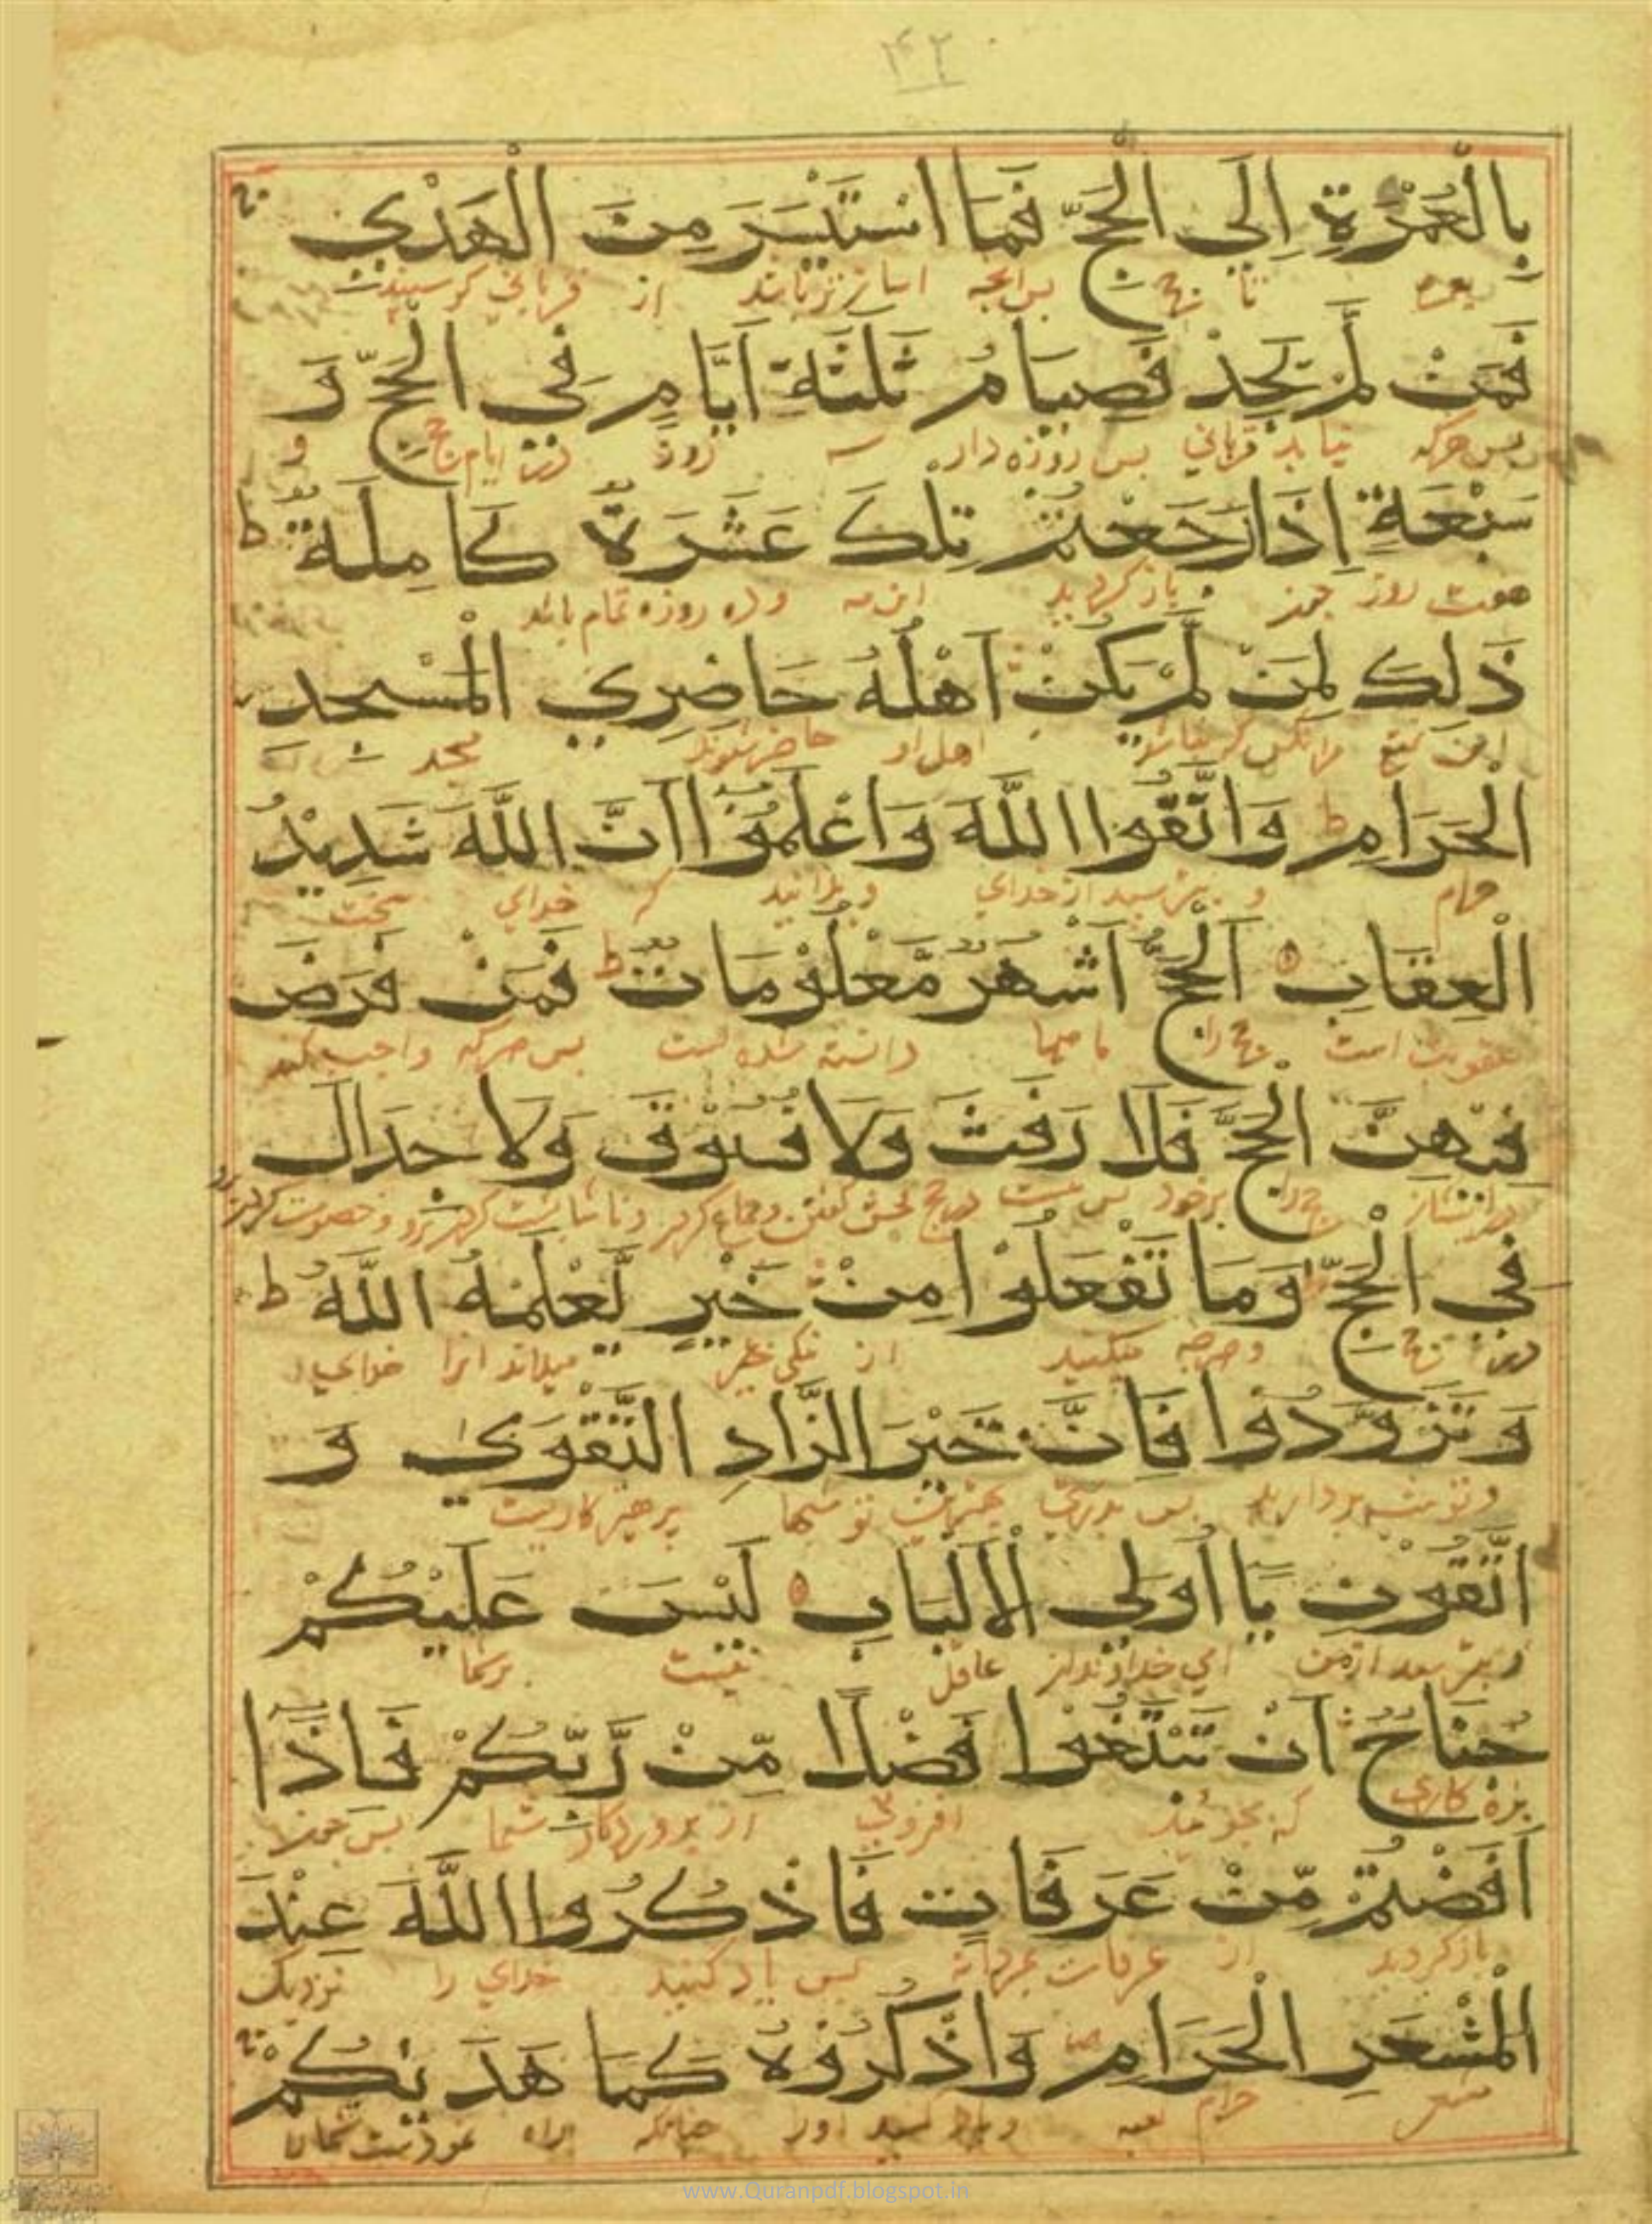 ۴۲
بِالْعُمْرَةِ اِلَى الْحَجِّ فَمَا اسْتَيْسَرَ مِنَ الْهَدْيِ
تا حج پس آنچه از قربانی
فَمَنْ لَمْ يَجِدْ فَصِيَامُ ثَلٰثَةِ اَيَّامٍ فِي الْحَجِّ وَ
پس هرکه نیابد قربانی پس روزه دارد سه روز در ایام حج و
سَبْعَةٍ اِذَا رَجَعْتُمْ تِلْكَ عَشَرَةٌ كَامِلَةٌ ط
هفت روز باز گردید این روزه تمام باشد
ذٰلِكَ لِمَنْ لَمْ يَكُنْ اَهْلُهُ حَاضِرِي الْمَسْجِدِ
این اهل او حاضر شوند
الْحَرَامِ ط وَاتَّقُوا اللّٰهَ وَاعْلَمُوْا اَنَّ اللّٰهَ شَدِيْدُ
حرام و بترسید از خدای و بدانید که خدای سخت
الْعِقَابِ اَلْحَجُّ اَشْهُرٌ مَّعْلُوْمَاتٌ ط فَمَنْ فَرَضَ
عقوبت است حج را ماهها دانسته شده است پس هرکه واجب کند
فِيْهِنَّ الْحَجَّ فَلَا رَفَثَ وَلَا فُسُوْقَ وَلَا جِدَالَ
حج را برخود
فِي الْحَجِّ وَمَا تَفْعَلُوْا مِنْ خَيْرٍ يَعْلَمْهُ اللّٰهُ ط
در حج و هرچه میکنید از نیکی میداند آنرا خدای
وَتَزَوَّدُوْا فَاِنَّ خَيْرَ الزَّادِ التَّقْوٰى وَ
و توشه بردارید پس بدرستی بهترین توشها پرهیزکاریست
اتَّقُوْنِ يَا اُولِي الْاَلْبَابِ لَيْسَ عَلَيْكُمْ
و بترسید از من ای خداوندان عاقل نیست بر شما
جُنَاحٌ اَنْ تَبْتَغُوْا فَضْلًا مِّنْ رَّبِّكُمْ فَاِذَا
بزه کاری که بجوئید افزونی از پروردگار شما پس چون
اَفَضْتُمْ مِّنْ عَرَفَاتٍ فَاذْكُرُوا اللّٰهَ عِنْدَ
باز گردید از عرفات پس یاد کنید خدای را نزدیک
الْمَشْعَرِ الْحَرَامِ وَاذْكُرُوْهُ كَمَا هَدٰىكُمْ
حرام و یاد کنید اورا چنانکه راه نمودست شمارا
www.Quranpdf.blogspot.in